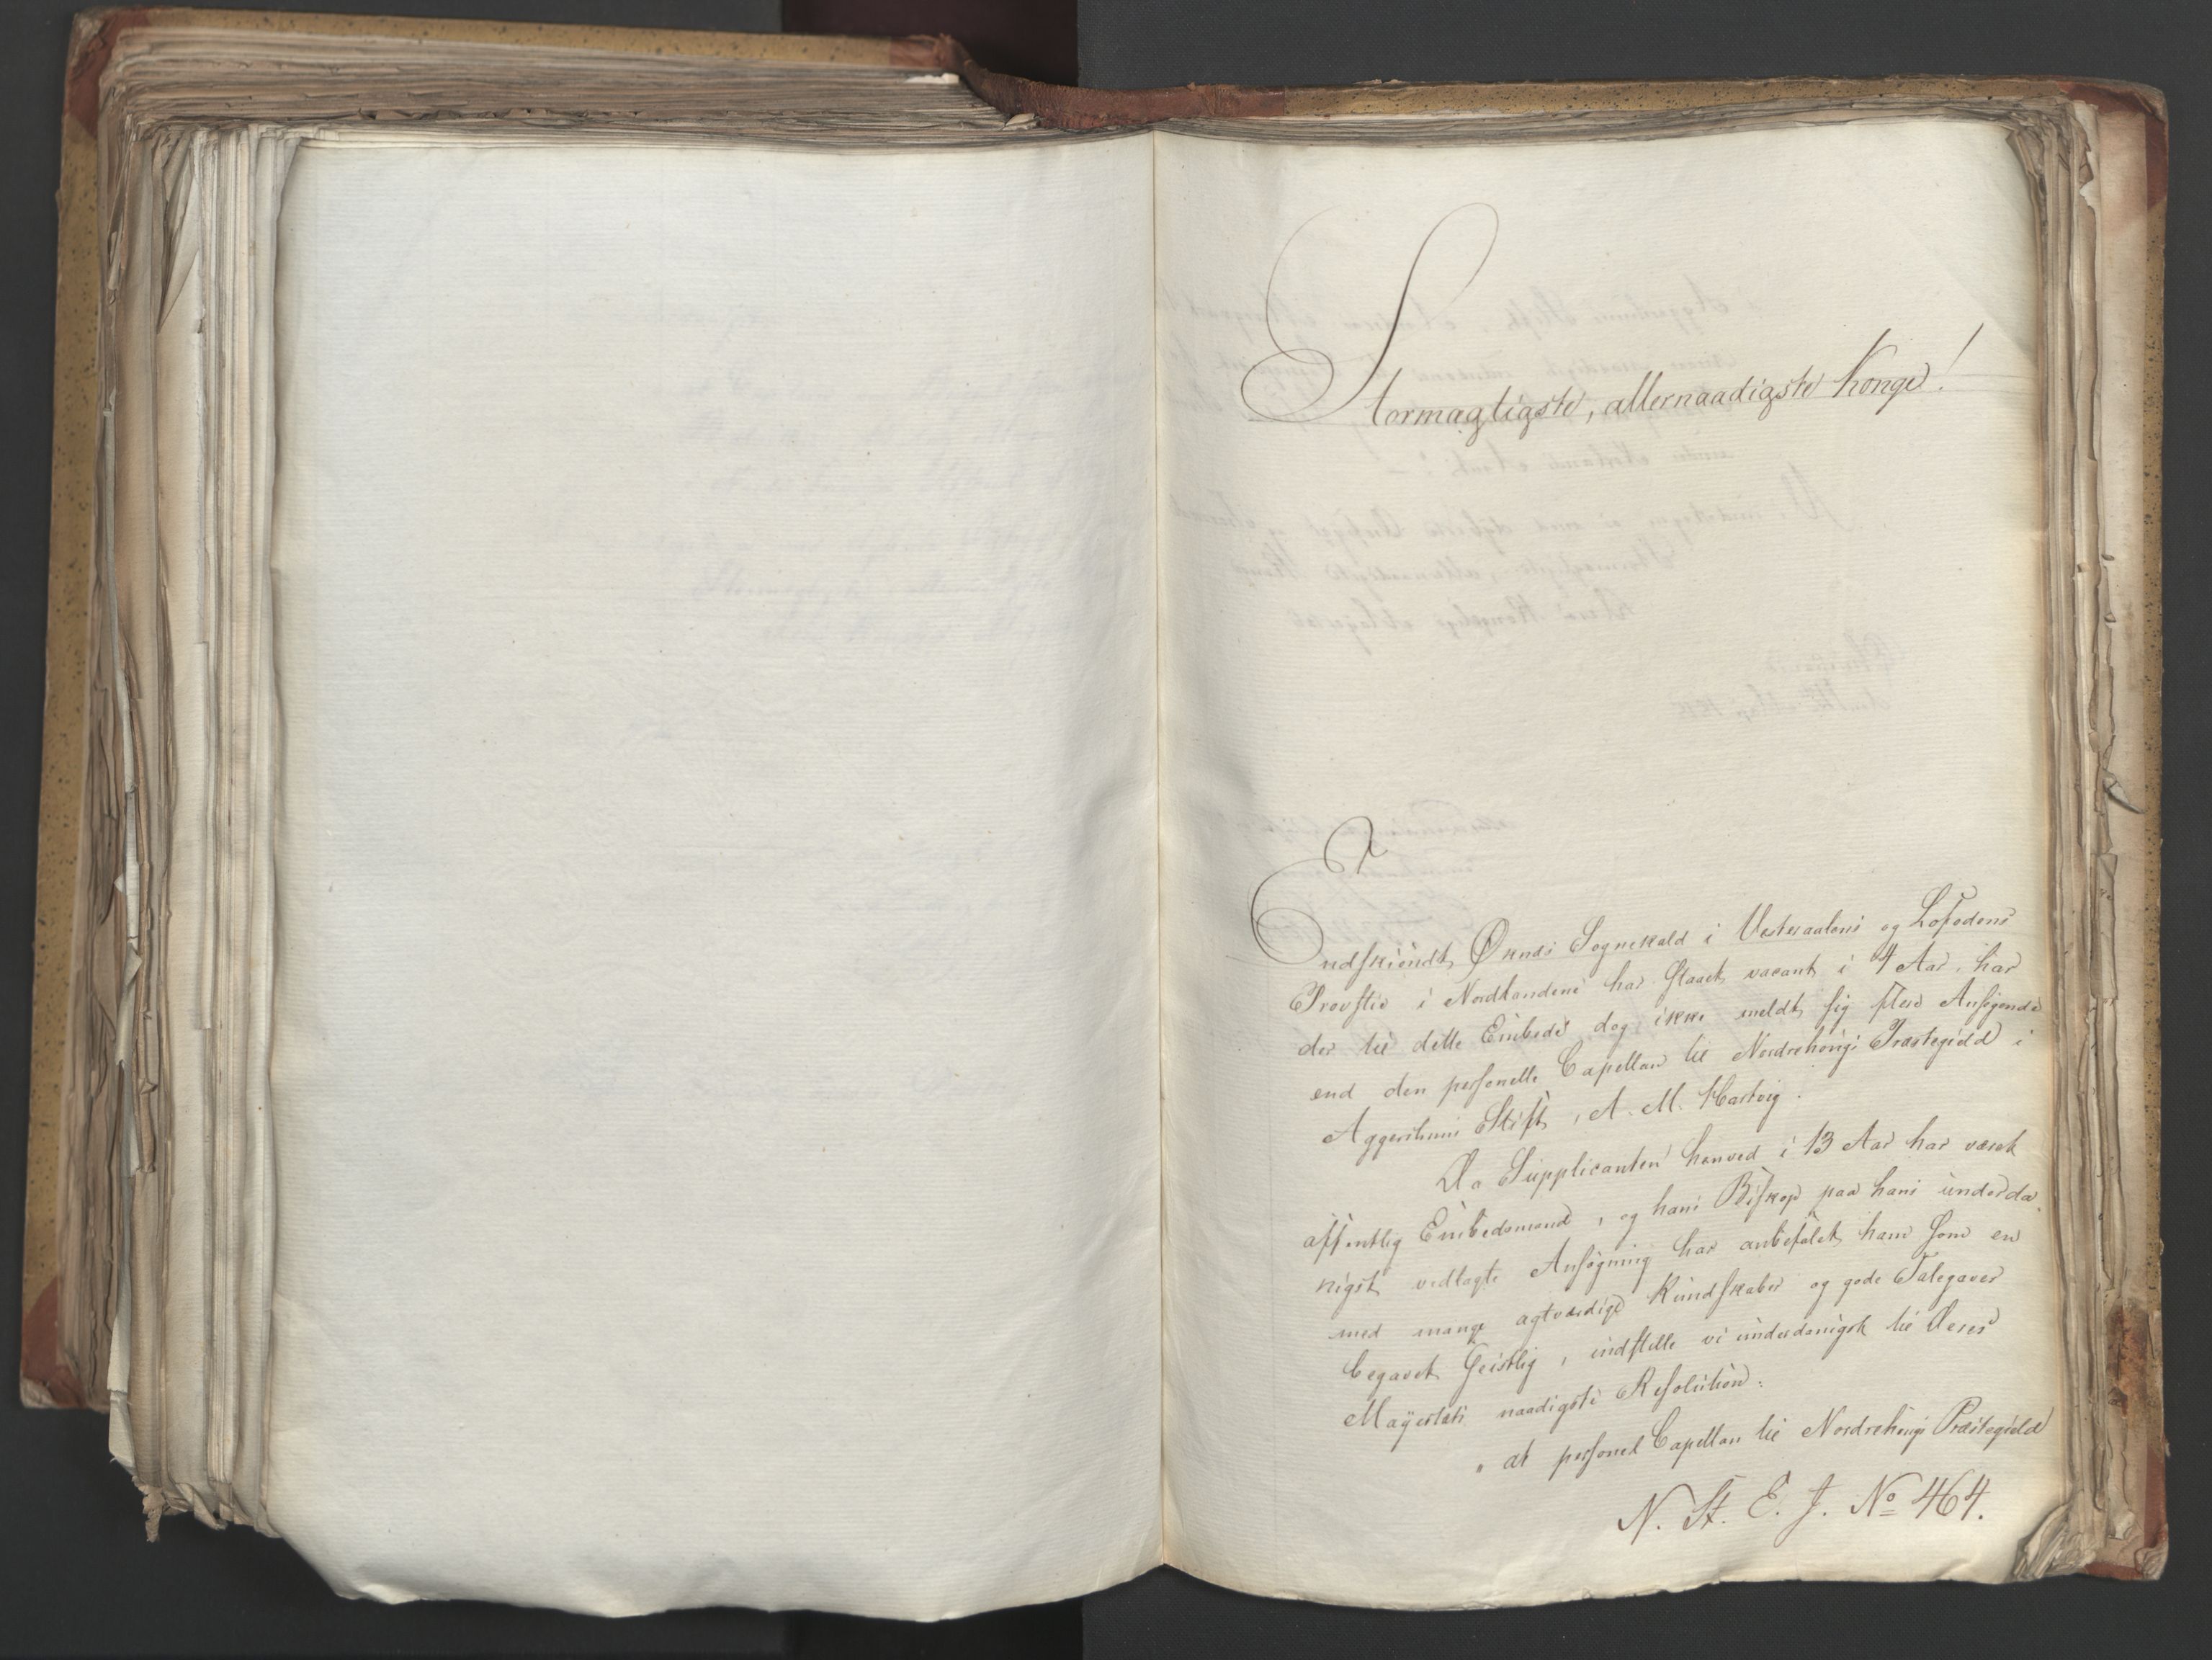 Stormægtigste, allernaadigste Konge!
Endskiøndt Øknæs Sognekald i Vesteraalens og Lofodens
Provstie i Nordlandene har staaet vacant i 4 Aar, har
der til dette Embede dog ikke meldt sig flere Ansøgende
end den personelle Capellan til Nordrehougs Præstegield i
Aggershuus Stift, A. M. Hartvig.
Da Supplicanten henved i 13 Aar har været
offentlig Embedsmand, og hans Biskop paa hans underda-
nigst vedlagte Ansøgning har anbefalet ham som en
med mange agtværdige Kundskaber og gode Talegaver
begavet Geistlig, indstille vi underdanigst til Deres
Majestæts naadigste Resolution:
„ at personel Capellan til Nordrehougs Præstegield
N. St. E. J. No 464.